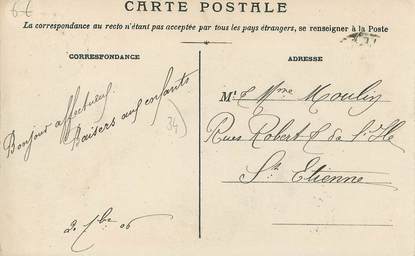 6€
CARTE POSTALE
La correspondance au recto n'étant pas acceptée par tous les pays étrangers, se renseigner à la Poste
CORRESPONDANCE
Bonjour affectueux
Baisers aux enfants
34
ADRESSE
Mr & Mme Moulin
Rues Robert & de
St Etienne